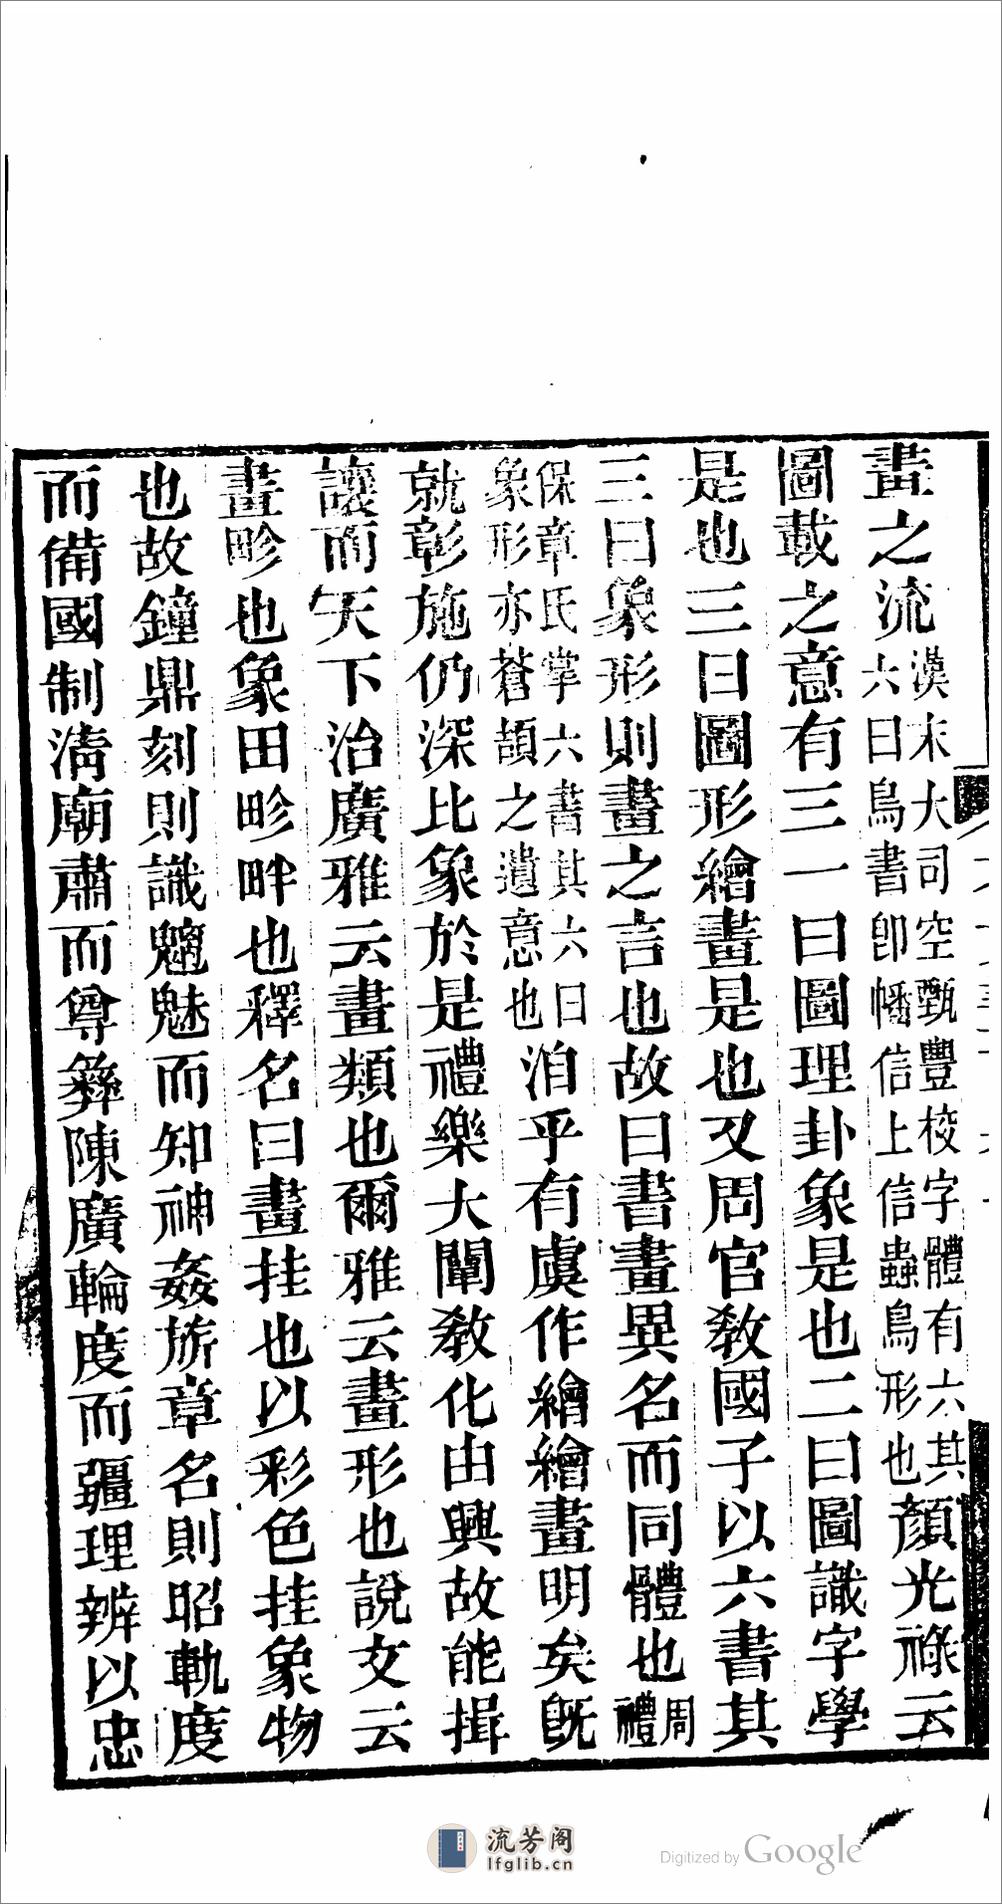 畫之流漢末大司空甄豐校字體有六其六曰鳥書卽幡信上信蟲鳥形也顏光祿云
圖載之意有三一曰圖理卦象是也二曰圖識字學
是也三曰圖形繪畫是也又周官敎國子以六書其
三曰象形則畫之言也故曰書畫異名而同體也周禮
保章氏掌六書其六曰象形亦蒼頡之遺意也洎乎有虞作繪繪畫明矣旣
就彰施仍深比象於是禮樂大闡敎化由興故能揖
讓而天下治廣雅云畫類也爾雅云畫形也說文云
畫畛也象田畛畔也釋名曰畫挂也以彩色挂象物
也故鐘鼎刻則識魑魅而知神姦旂章名則昭軌度
而備國制淸廟肅而尊彝陳廣輪度而疆理辨以忠
流芳阁
lfglib.cn
Digitized by Google